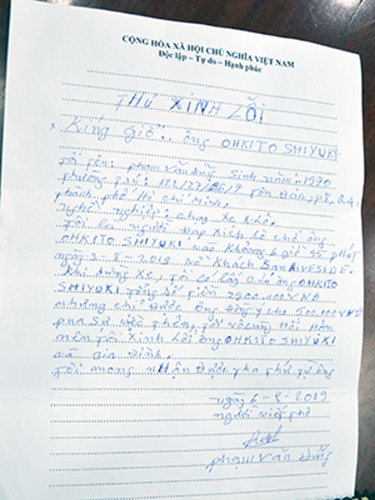 CỘNG HÒA XÃ HỘI CHỦ NGHĨA VIỆT NAM
Độc lập – Tự do – Hạnh phúc
THƯ XINH LỖI
x Kính gửi: ông OHKITO SHIYUKI
Tôi tên: phạm Văn Dũng Sinh năm: 1970
phường trú: Tôn Đản, p8, Q4.
thành phố Hồ Chí Minh.
nghề nghiệp: chạy Xe Xích lô.
Tôi là người đạp Xích lô chở ông
OHKITO SHIYUKI vào khoảng 6 giờ 45 phút
ngày 3-8-2019 với khách Sạn RIVESIDE.
khi dừng Xe, Tôi có lấy của ông OHKITO
SHIYUKI tổng số tiền 2900.000 VNĐ
nhưng chỉ được ông Đồng ý cho 500.000 VNĐ
qua Sự việc trên, Tôi vô cùng Hối Hận
nên tôi Xinh lỗi ông OHKITO SHIYUKI
và gia đình.
Tôi mong nhận được tha thứ từ ông
ngày 6-8-2019
người viết thư
phạm Văn Dũng